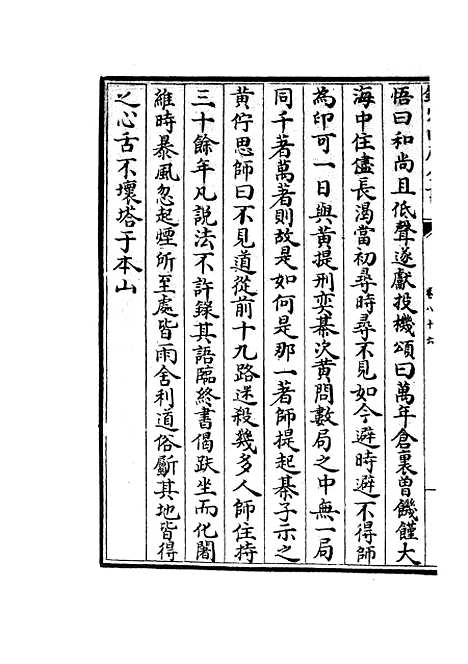 卷八十六
悟曰和尚且低聲遂獻投機頌曰萬年倉裏曽饑饉大
海中住儘長渴當初尋時尋不見如今避時避不得師
為印可一日與黄提刑奕棊次黄問數局之中無一局
同千著萬著則故是如何是那一著師提起棊子示之
黄佇思師曰不見道從前十九路迷殺幾多人師住持
三十餘年凡說法不許録其語臨終書偈趺坐而化闍
維時暴風忽起煙所至處皆雨舍利道俗斸其地皆得
之心舌不壞塔于本山